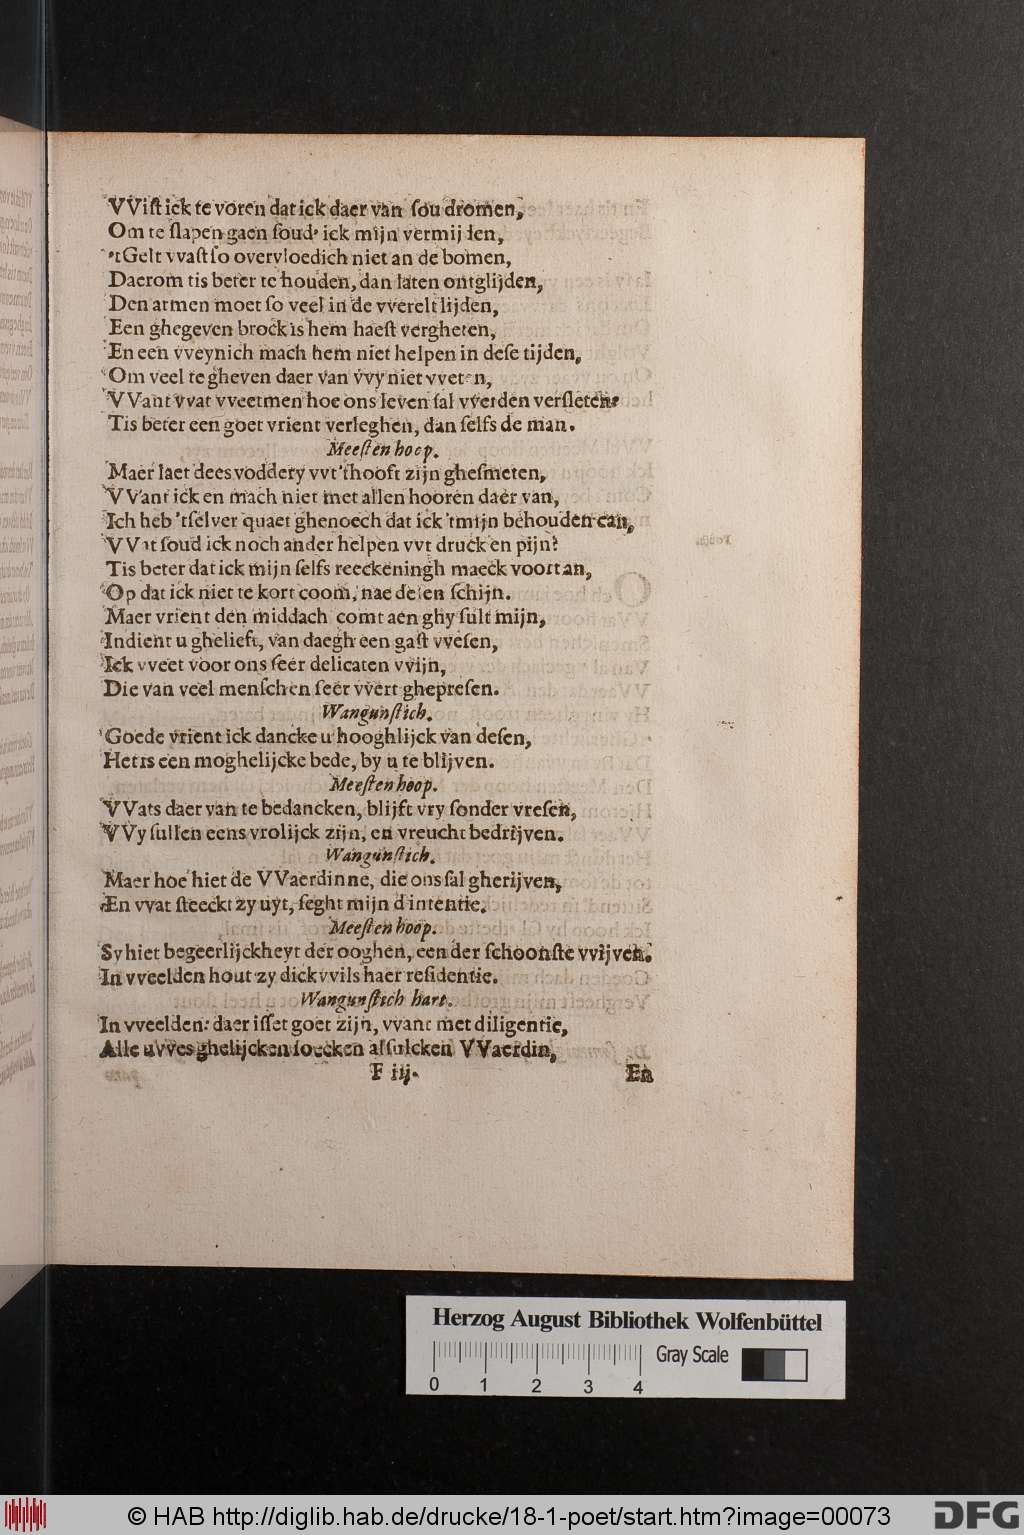 VVist ick te voren dat ick daer van sou dromen,
Om te slapen gaen soud' ick mijn vermijden,
'tGelt vvast so overvloedich niet an de bomen,
Daerom tis beter te houden, dan laten ontglijden,
Den armen moet so veel in de vverelt lijden,
Een ghegeven brock is hem haest vergheten,
En een vveynich mach hem niet helpen in dese tijden,
Om veel te gheven daer van vvy niet vveten,
VVant vvat vveetmen hoe ons leven sal vverden versleten?
Tis beter een goet vrient verleghen, dan selfs de man.
Meesten hoop.
Maer laet dees voddery vvt'thooft zijn ghesmeten,
VVant ick en mach niet met allen hooren daer van,
Ich heb 'tselver quaet ghenoech dat ick 'tmijn behouden can,
VVat soud ick noch ander helpen vvt druck en pijn?
Tis beter dat ick mijn selfs reeckeningh maeck voortan,
Op dat ick niet te kort coom, nae desen schijn.
Maer vrient den middach comt aen ghy sult mijn,
Indient u ghelieft, van daegh een gast vvesen,
Ick vveet voor ons seer delicaten vvijn,
Die van veel menschen seer vvert ghepresen.
Wangunstich.
Goede vrient ick dancke u hooghlijck van desen,
Het is een moghelijcke bede, by u te blijven.
Meesten hoop.
VVats daer van te bedancken, blijft vry sonder vresen,
VVy sullen eens vrolijck zijn, en vreucht bedrijven.
Wangunstich.
Maer hoe hiet de VVaerdinne, die ons sal gherijven,
En vvat steeckt zy uyt, seght mijn d'intentie.
Meesten hoop.
Sy hiet begeerlijckheyt der ooghen, een der schoonste vvijven.
In vveelden hout zy dickvvils haer residentie.
Wangunstich hart.
In vveelden: daer isset goet zijn, vvant met diligentie,
Alle uvves ghelijcken soecken alsulcken VVaerdin,
F iij. En
Herzog August Bibliothek Wolfenbüttel
Gray Scale
0 1 2 3 4
© HAB http://diglib.hab.de/drucke/18-1-poet/start.htm?image=00073
DFG